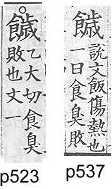 饖
乙大切食臭
敗也丈一
p523
饖
說文飯傷熱也
一曰食臭敗
p537